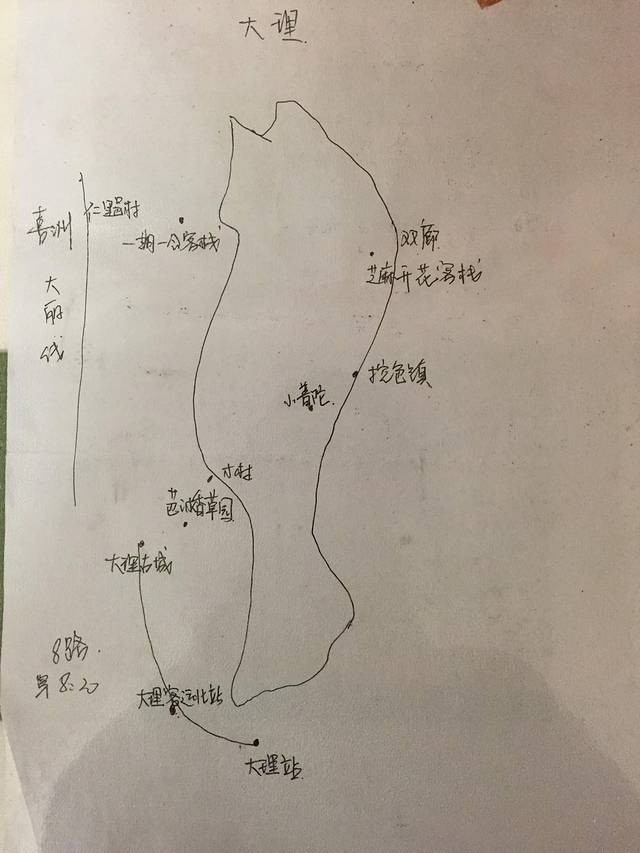 大理
仁里村
喜洲
双廊
一期一会客栈
芝麻开花客栈
大丽线
挖色镇
小普陀
才村
大理古城
8路
大理客运北站
大理站